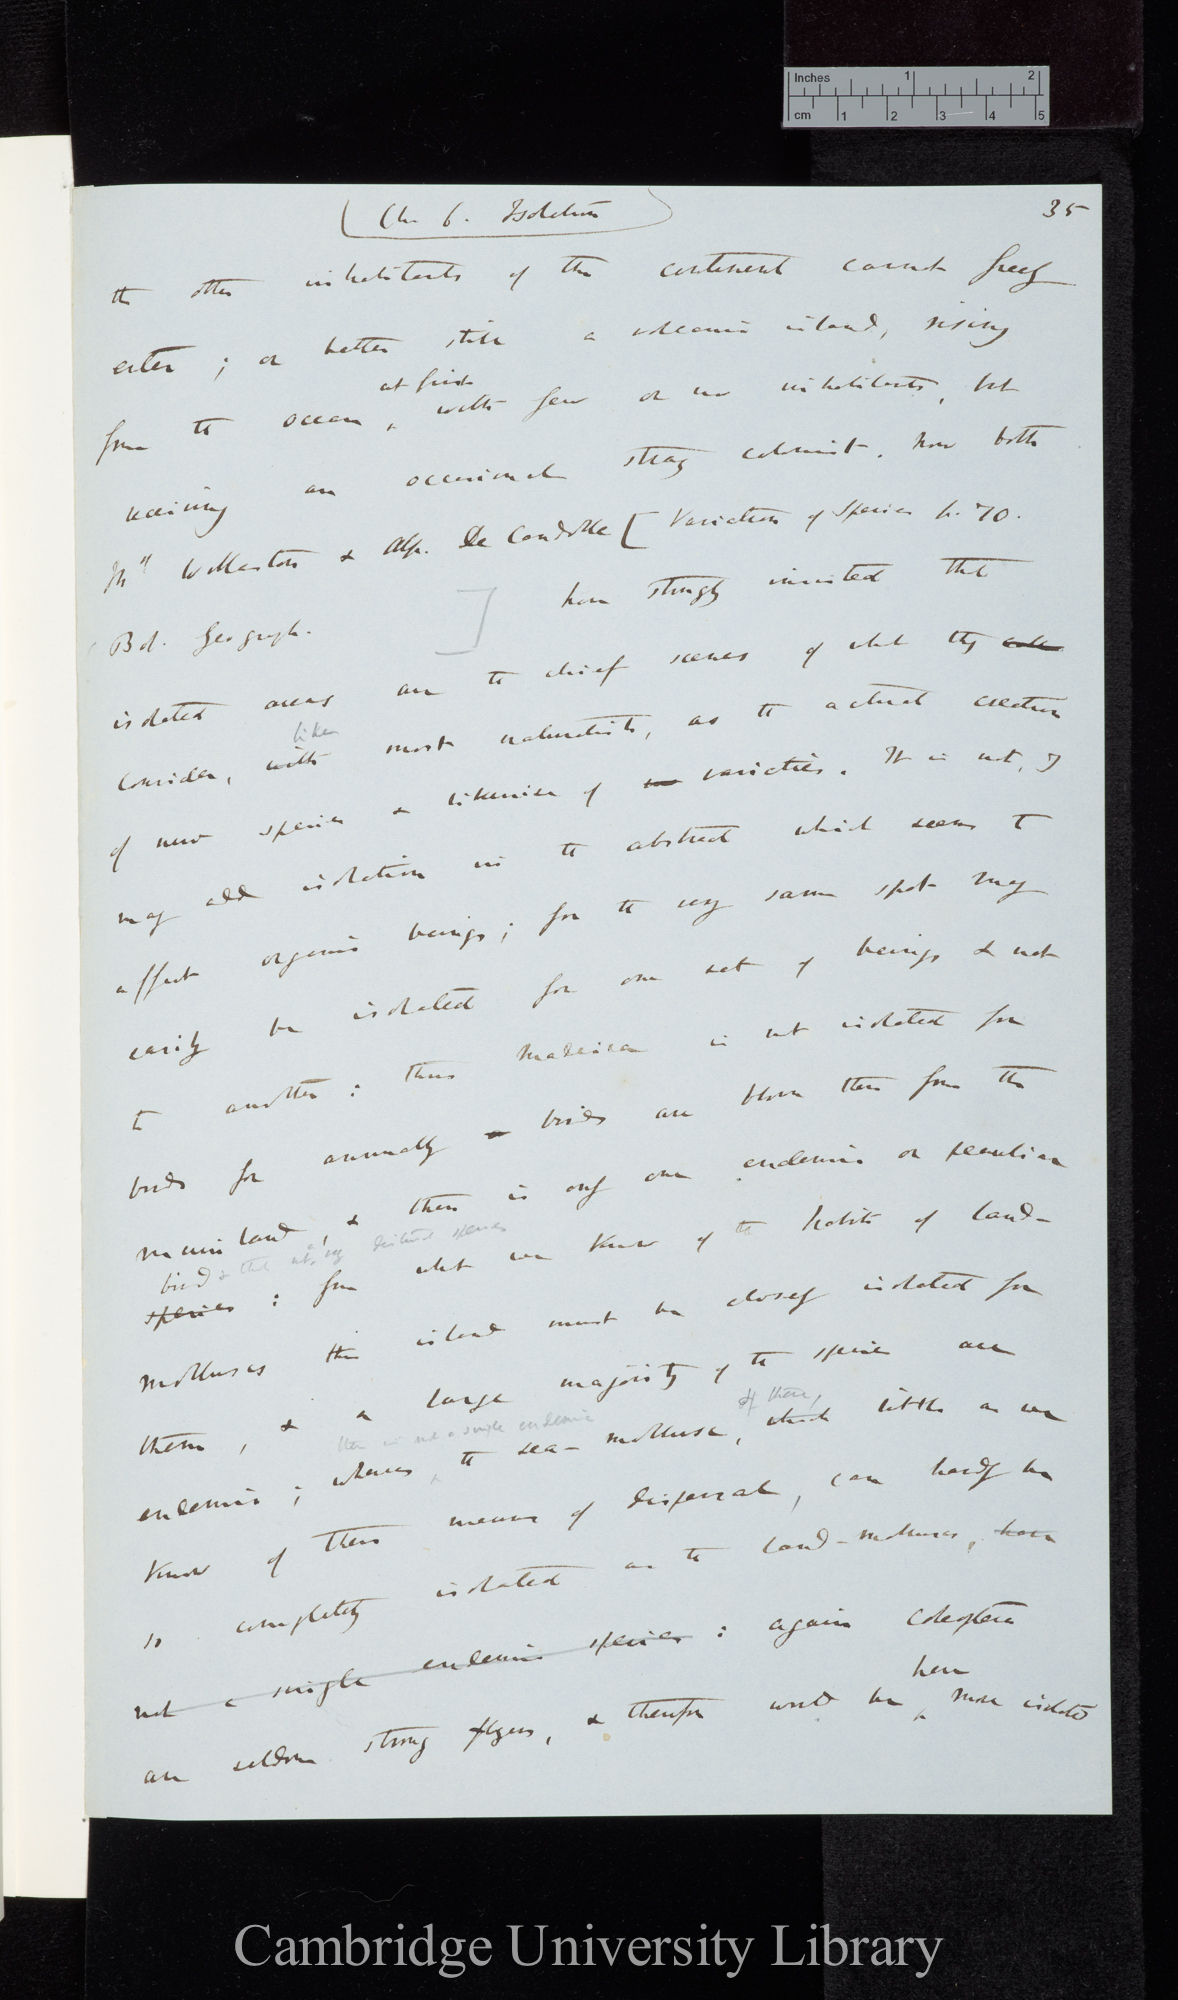 Inches 1 2
cm 1 2 3 4 5
(Ch. 6. Isolation) 35
the other inhabitants of the continent cannot freely
enter; or better still a volcanic island, rising
at first
from the ocean, with few or no inhabitants, but
receiving an occasional stray colonist. Now both
Mr Wollaston & Alp. De Candolle [Variation of Species p. 70.
Bot. Geograph. ] have strongly insisted that
isolated areas are the chief scenes of what they
like
consider, with most naturalists, as the actual creation
of new species & likewise of varieties. It is not, I
may add isolation in the abstract which seems to
affect organic beings; for the very same spot may
easily be isolated for one set of beings & not
to another: thus Madeira is not isolated for
birds for annually birds are blown there from the
mainland, & there is only one endemic or peculiar
bird & that not a very distinct species
species: from what we know of the habits of land-
molluscs this island must be closely isolated for
them, & a large majority of the species are
there is not a single endemic of these,
endemic; whereas the sea-mollusca, which little as we
know of their means of dispersal, can hardly be
so completely isolated as the land-molluscs, have
not a single endemic species: again Coleoptera
here
are seldom strong flyers, & therefore would be more isolated
Cambridge University Library